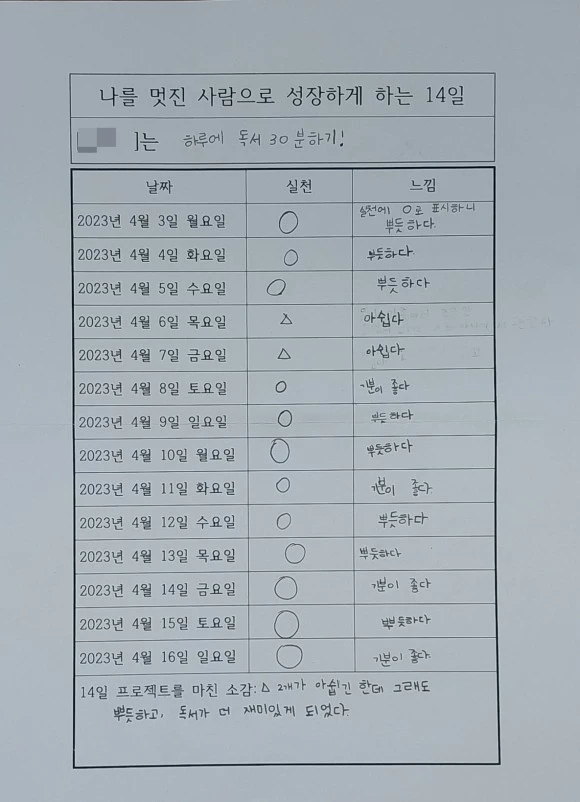 나를 멋진 사람으로 성장하게 하는 14일
]는 하루에 독서 30분하기!
날짜 실천 느낌
2023년 4월 3일 월요일 ○ 실천에 O로 표시하니
뿌듯하다.
2023년 4월 4일 화요일 ○ 뿌듯하다.
2023년 4월 5일 수요일 ○ 뿌듯하다
2023년 4월 6일 목요일 △ 아쉽다
2023년 4월 7일 금요일 △ 아쉽다
2023년 4월 8일 토요일 ○ 기분이 좋다
2023년 4월 9일 일요일 ○ 뿌듯하다
2023년 4월 10일 월요일 ○ 뿌듯하다
2023년 4월 11일 화요일 ○ 기분이 좋다
2023년 4월 12일 수요일 ○ 뿌듯하다
2023년 4월 13일 목요일 ○ 뿌듯하다
2023년 4월 14일 금요일 ○ 기분이 좋다
2023년 4월 15일 토요일 ○ 뿌듯하다
2023년 4월 16일 일요일 ○ 기분이 좋다.
14일 프로젝트를 마친 소감: △ 2개가 아쉽긴 한데 그래도
뿌듯하고, 독서가 더 재미있게 되었다.